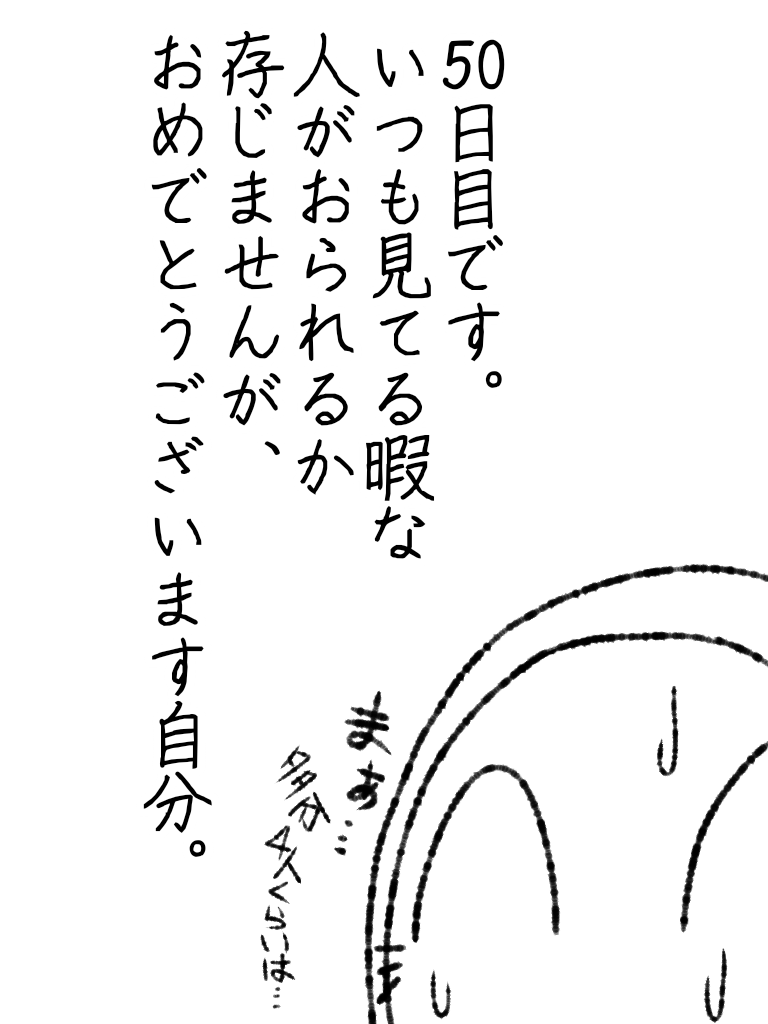 50日目です。
いつも見てる暇な
人がおられるか
存じませんが、
おめでとうございます自分。
まぁ…
多分4人くらいは…